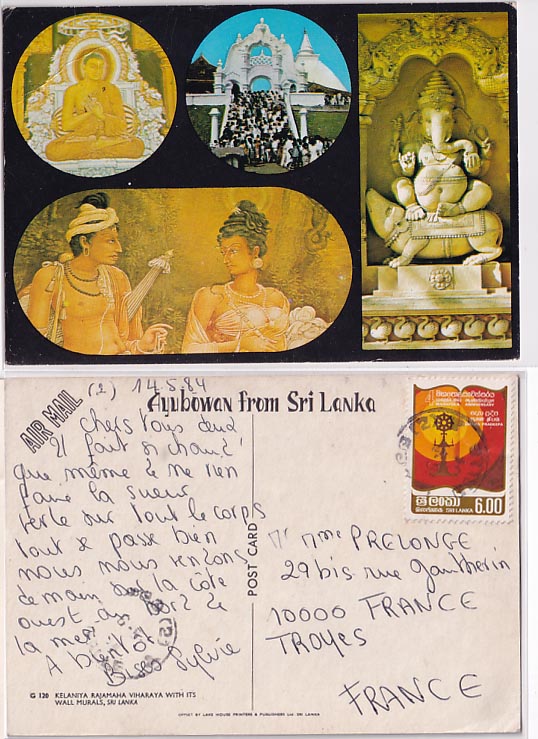 AIR MAIL
(2) 14.5.84
Ayubowan from Sri Lanka
chers tous deux
Il fait si chaud
que même à ne rien
faire la sueur
perle sur tout le corps
tout se passe bien
nous nous rendons
demain sur la côte
ouest au bord de
la mer.
A bientôt
Bises Sylvie
POST CARD
6.00
SRI LANKA
Mme PRELONGE
29 bis rue Gautherin
10000 FRANCE
TROYES
FRANCE
G 120 KELANIYA RAJAMAHA VIHARAYA WITH ITS
WALL MURALS, SRI LANKA
OFFSET BY LAKE HOUSE PRINTERS & PUBLISHERS Ltd. SRI LANKA